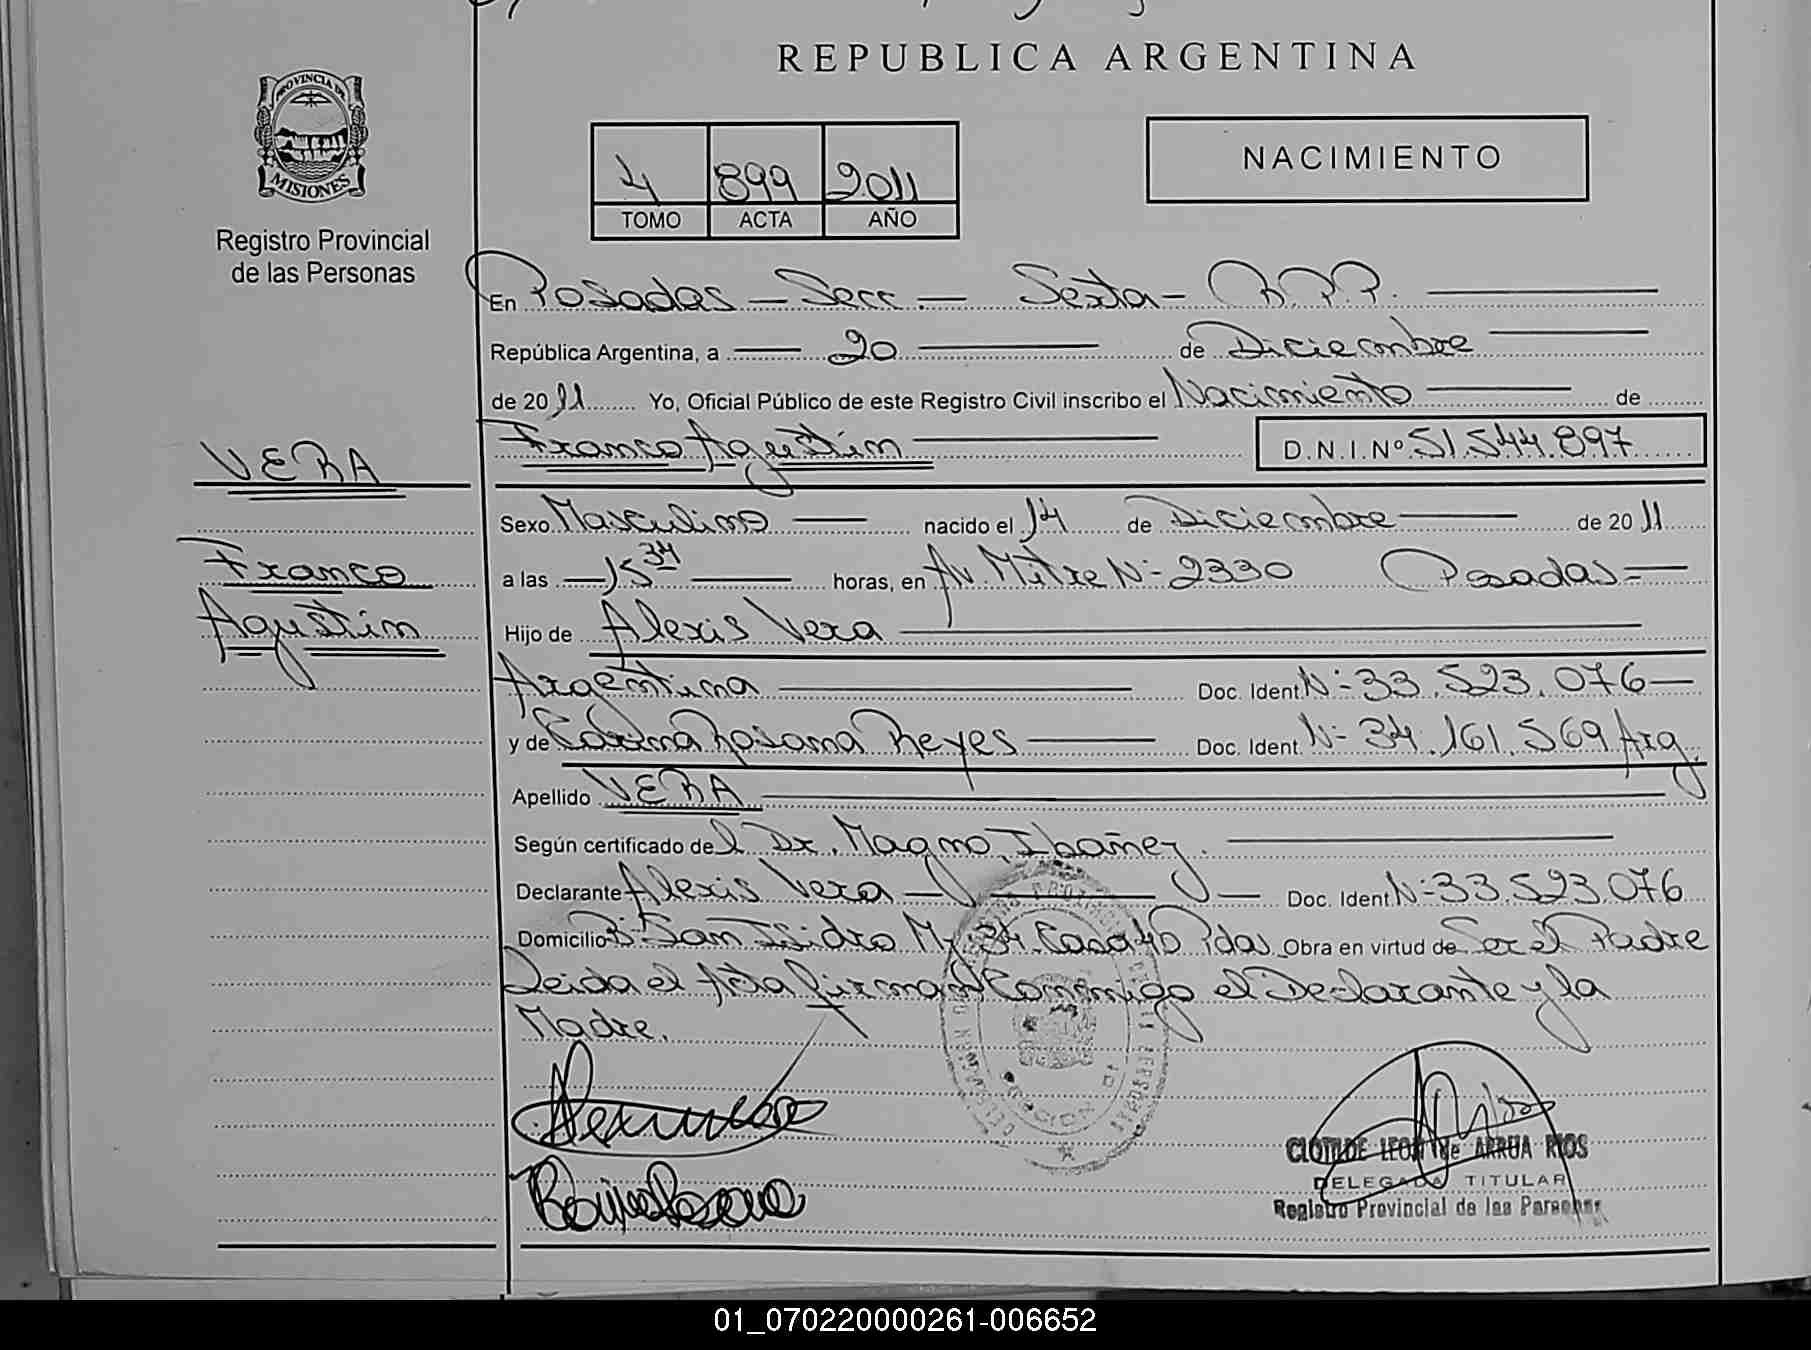 REPUBLICA ARGENTINA
PROVINCIA DE
MISIONES
Registro Provincial
de las Personas
4 899 2011
TOMO ACTA AÑO
NACIMIENTO
En Posadas — Secc. — Sexta — R.P.P.
República Argentina, a — 20 — de Diciembre
de 2011 Yo, Oficial Público de este Registro Civil inscribo el Nacimiento — de
Franco Agustin — D.N.I.Nº 51.544.897
VERA
Franco
Agustin
Sexo Masculino — nacido el 14 de Diciembre — de 2011
a las — 15 34 — horas, en Av. Mitre Nº 2330 Posadas —
Hijo de Alexis Vera —
Argentina — Doc. Ident. Nº 33.523.076 —
y de Rosana Reyes — Doc. Ident. Nº 34.161.569 Arg.
Apellido VERA —
Según certificado del Dr. Magno Ibañez. —
Declarante Alexis Vera — Doc. Ident. Nº 33.523.076
Domicilio Bº San Isidro Mz. 34 Casa 40 Pdas. Obra en virtud de Ser el Padre
Leida el Acta firman Conmigo el Declarante y la
Madre.
CLOTILDE LEON de ARRUA RIOS
DELEGADA TITULAR
Registro Provincial de las Personas
01_070220000261-006652